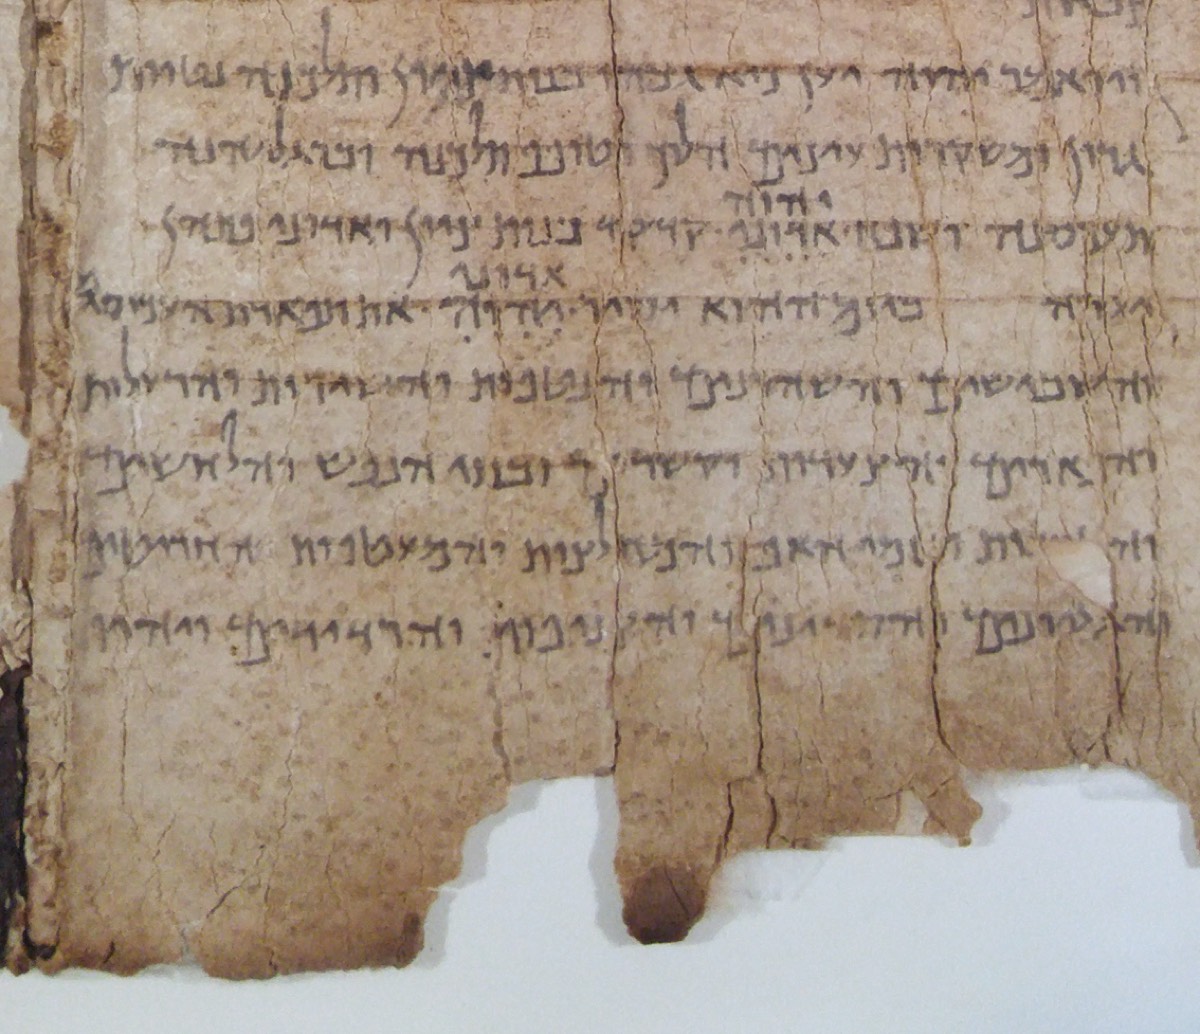 צבאות
ויואמר יהוה יען כיא גבהו בנות ציון תלכנה נטוות
גרון ומשקרות עיניהם הלוך וטופף תלכנה וברגליהנה
יהוה
תעכסנה ושפח אדוני קדקד בנות ציון ואדוני פתהן
אדוני
יערה ביום ההוא יסיר יהוה את תפארת העכיסים
והשבישים והשהרנים והנטפות והשירות והרעלות
והפארים והצעדות והקשרים ובתי הנפש והלחשים
והטבעות ונזמי האף והמחלצות והמעטפות
והגליונים והסדינים והצניפות והרדידים ויהיו